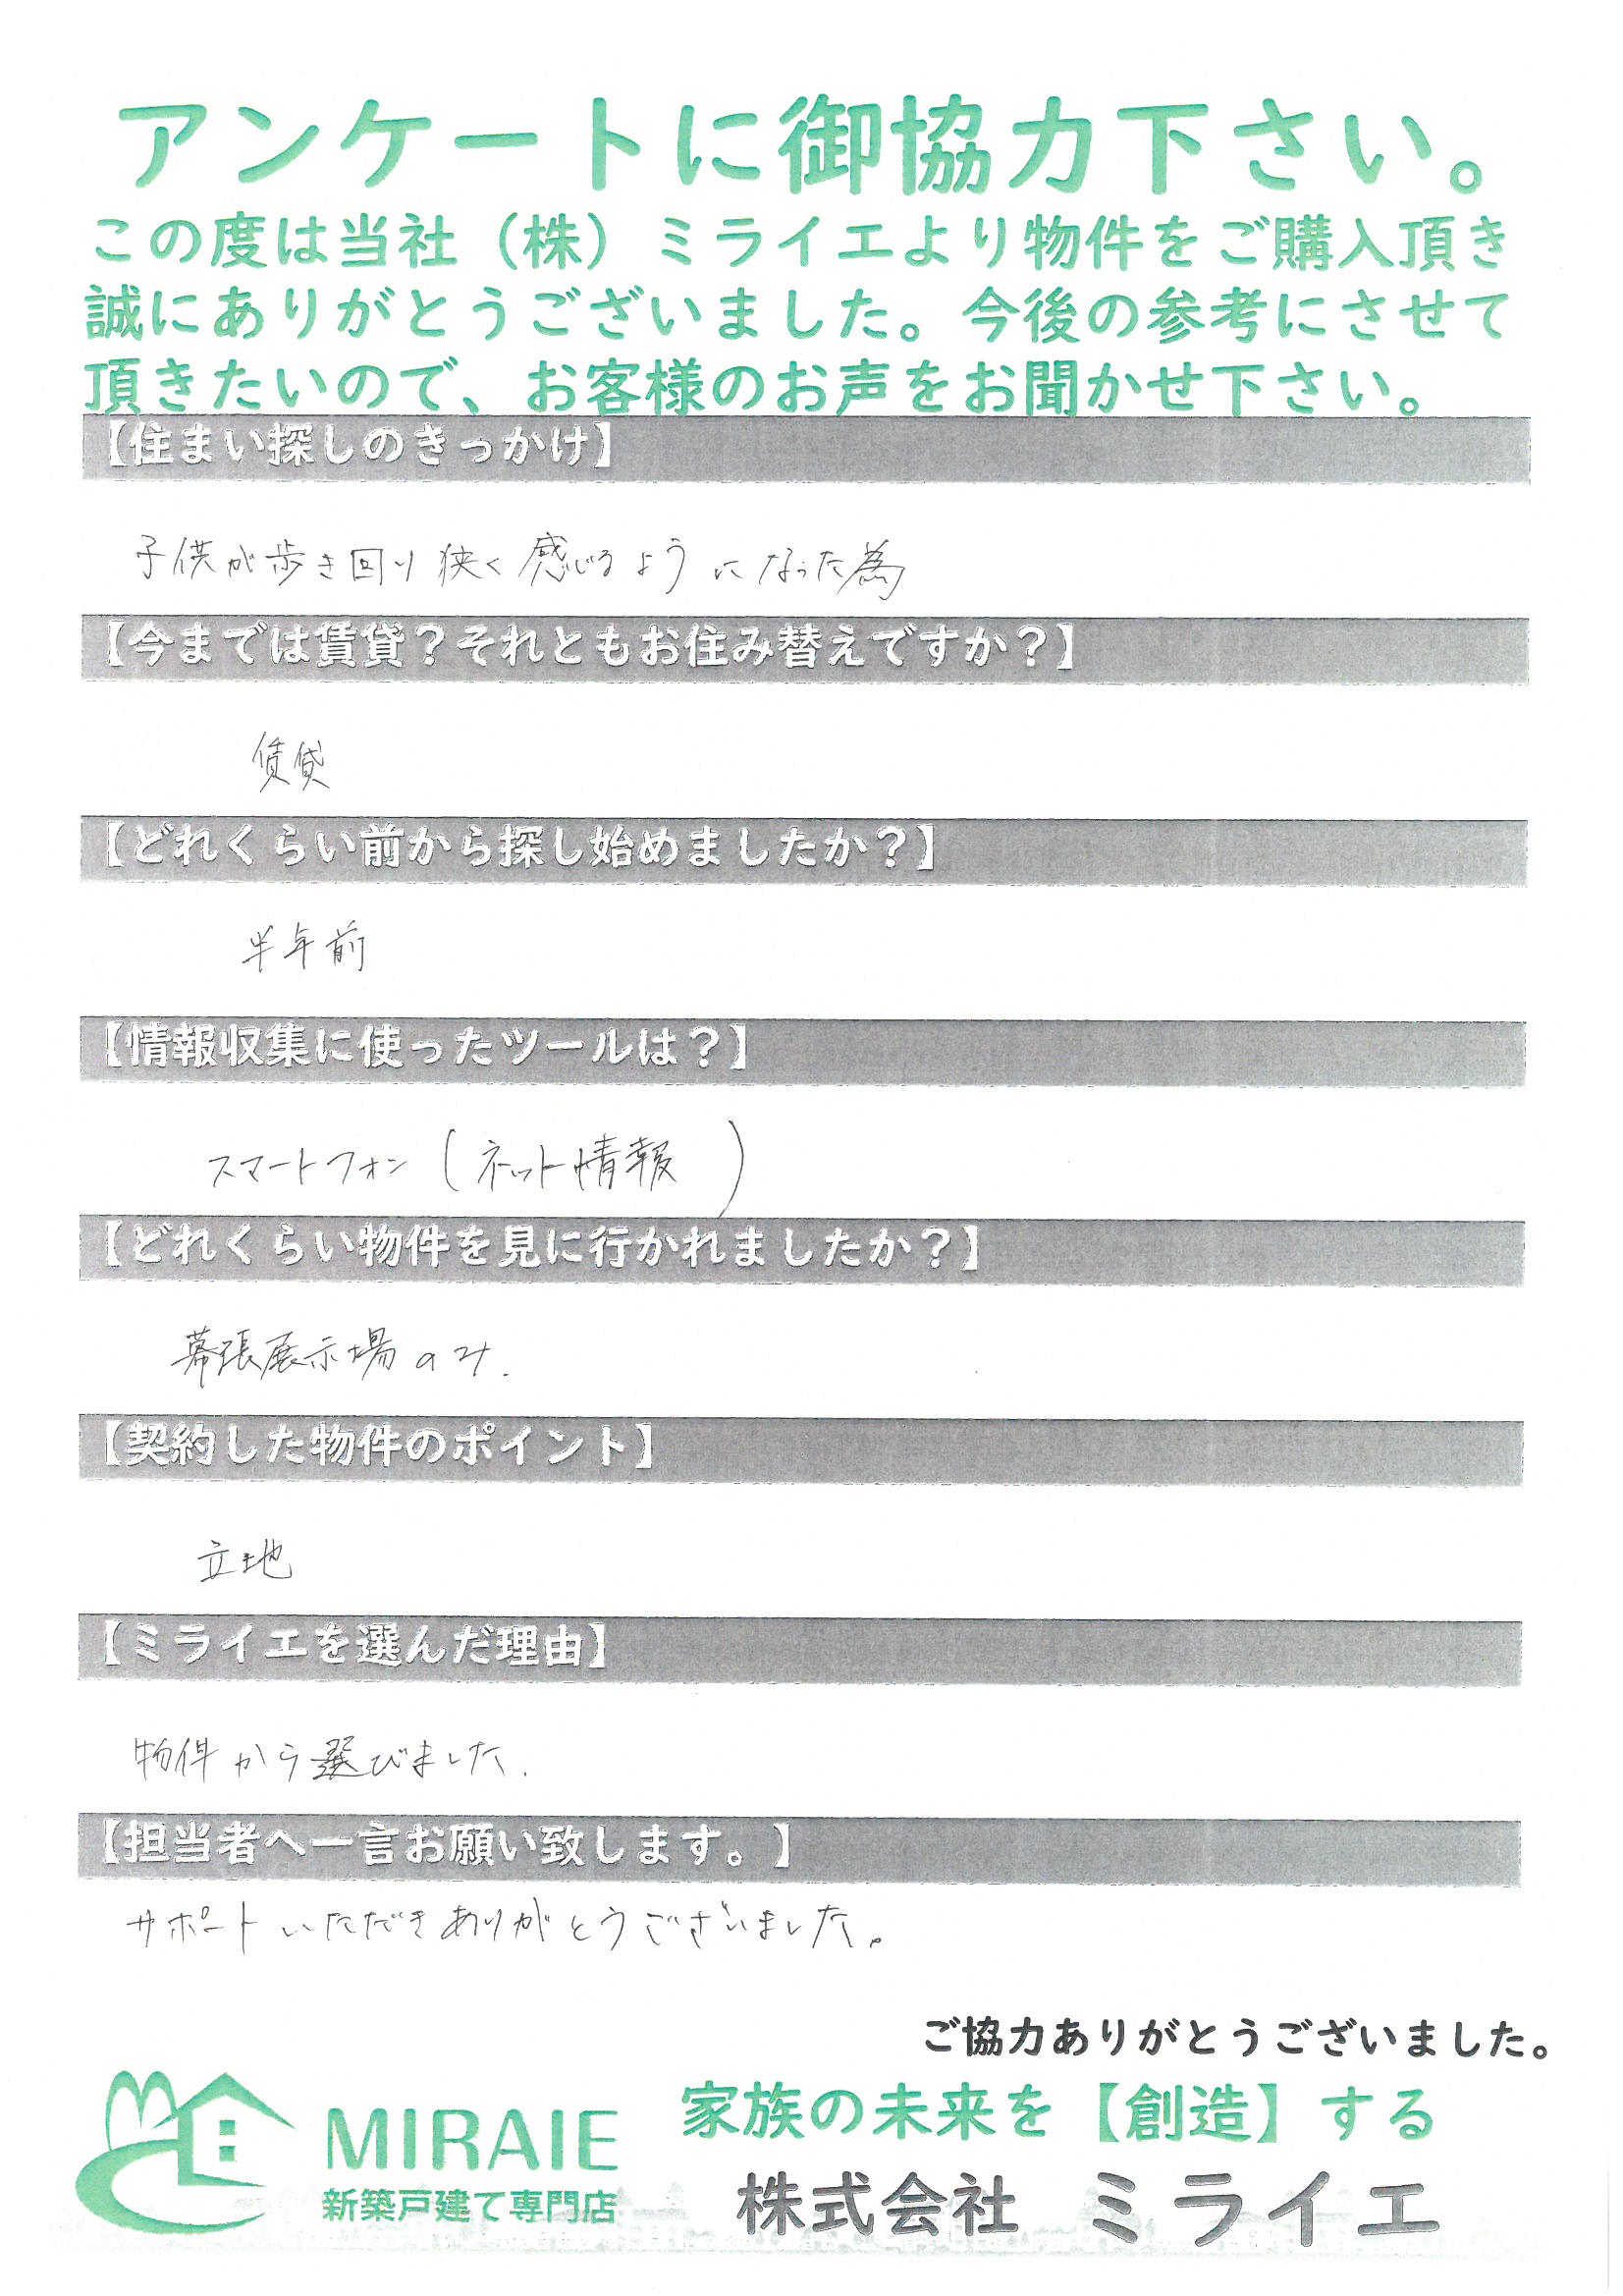 アンケートに御協力下さい。
この度は当社（株）ミライエより物件をご購入頂き
誠にありがとうございました。今後の参考にさせて
頂きたいので、お客様のお声をお聞かせ下さい。
【住まい探しのきっかけ】
子供が歩き回り狭く感じるようになった為
【今までは賃貸？それともお住み替えですか？】
賃貸
【どれくらい前から探し始めましたか？】
半年前
【情報収集に使ったツールは？】
スマートフォン（ネット情報）
【どれくらい物件を見に行かれましたか？】
幕張展示場のみ.
【契約した物件のポイント】
立地
【ミライエを選んだ理由】
物件から選びました.
【担当者へ一言お願い致します。】
サポートいただきありがとうございました。
ご協力ありがとうございました。
MIRAIE
新築戸建て専門店
家族の未来を【創造】する
株式会社 ミライエ